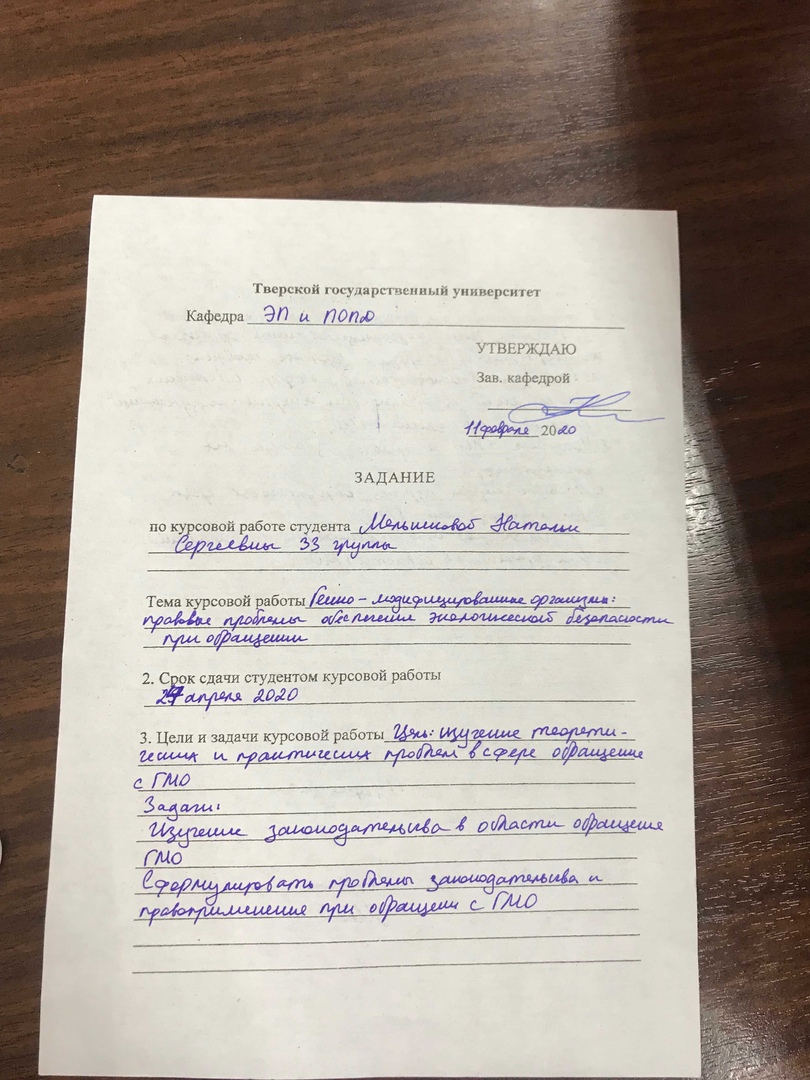 Тверской государственный университет
Кафедра ЭП и ПОПД
УТВЕРЖДАЮ
Зав. кафедрой
11 февраля 2020
ЗАДАНИЕ
по курсовой работе студента Мельниковой Натальи
Сергеевны 33 группы
Тема курсовой работы Генно - модифицированные организмы:
правовые проблемы обеспечения экологической безопасности
при обращении
2. Срок сдачи студентом курсовой работы
апреля 2020
3. Цели и задачи курсовой работы Цель: изучение теорети-
ческих и практических проблем в сфере обращение
с ГМО
Задачи:
Изучение законодательсва в области обращение
ГМО
Сформулировать проблемы законодательсва и
правоприменение при обращении с ГМО